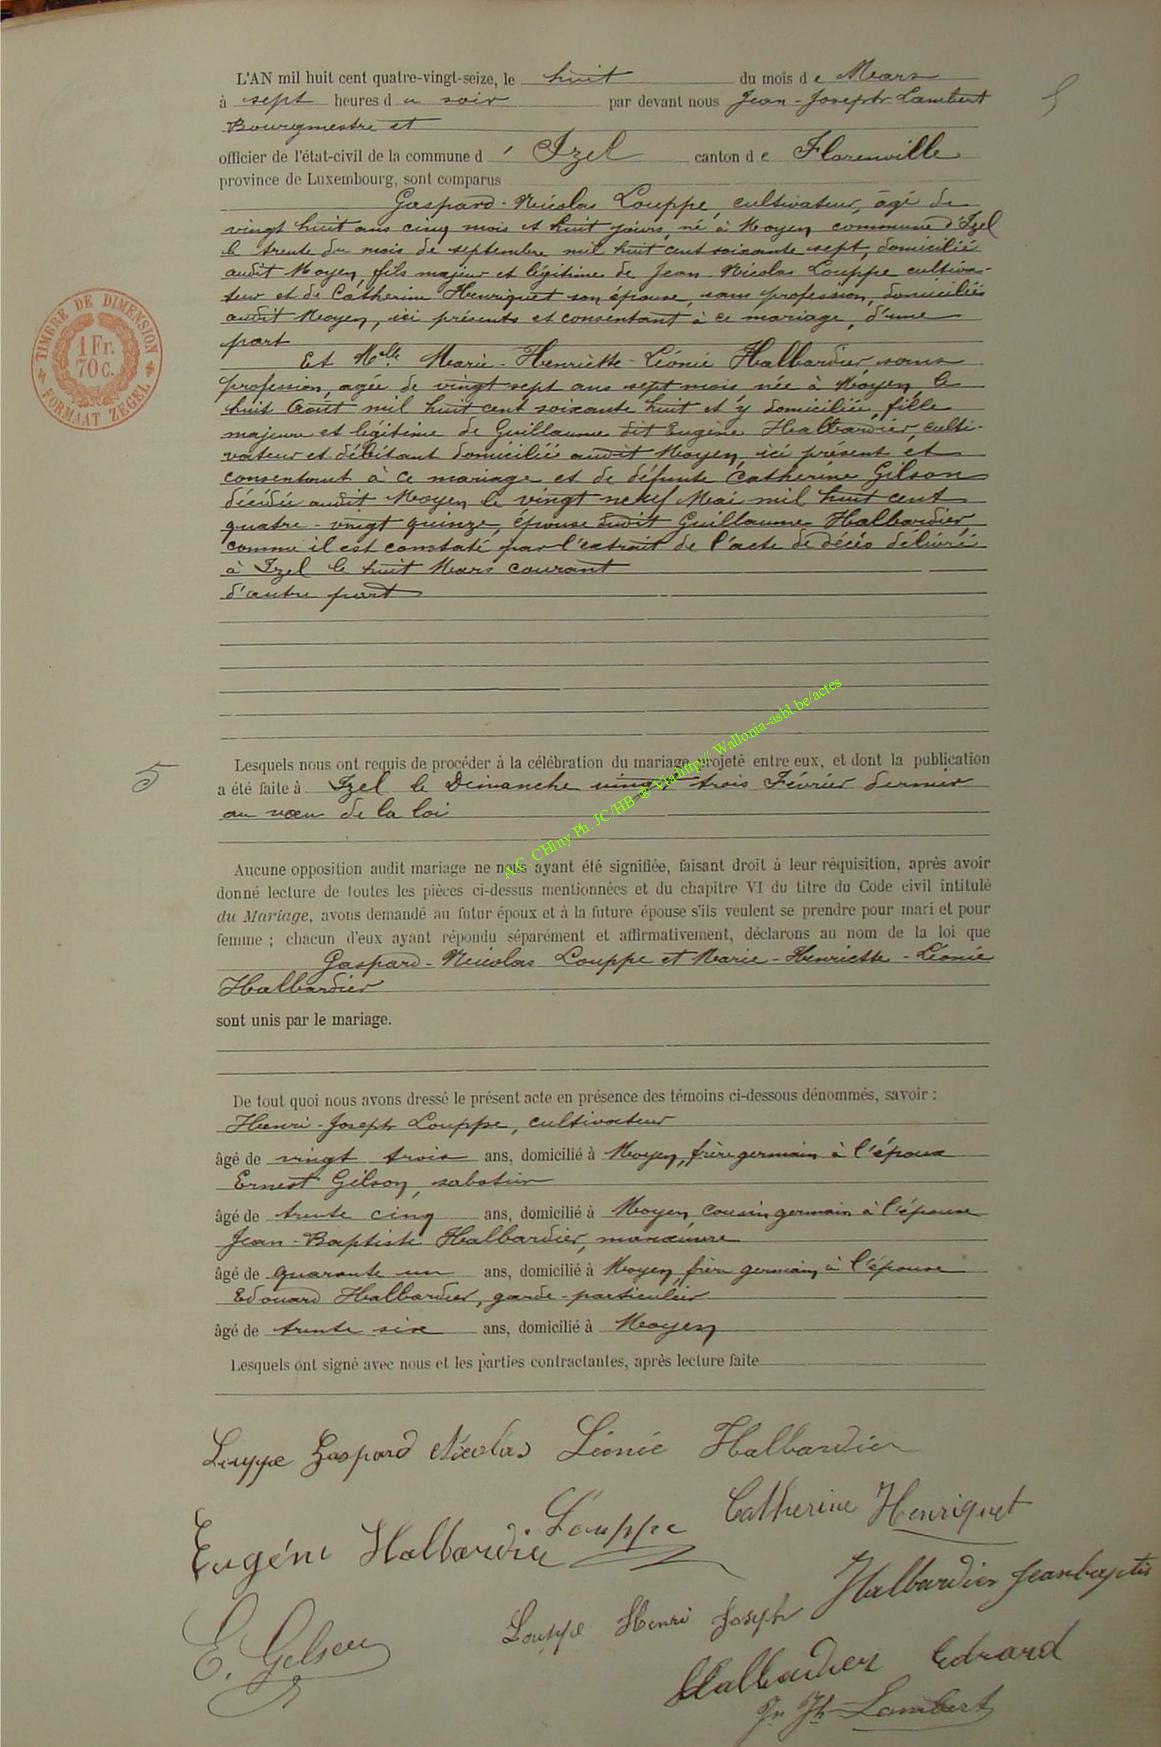 L'AN mil huit cent quatre-vingt-seize, le huit du mois de Mars
à sept heures du soir par devant nous Jean-Joseph Lambert
Bourgmestre et
officier de l'état-civil de la commune d'Izel canton de Florenville
province de Luxembourg, sont comparus
Gaspard-Nicolas Louppe, cultivateur, âgé de
vingt huit ans cinq mois et huit jours, né à Moyen commune d'Izel
le trente du mois de septembre mil huit cent soixante sept, domicilié
audit Moyen, fils majeur et légitime de Jean Nicolas Louppe cultiva-
teur et de Catherine Henriquet son épouse, sans profession, domiciliés
audit Moyen, ici présents et consentant à ce mariage, d'une
part
Et Melle Marie-Henriette-Léonie Halbardier, sans
profession, agée de vingt sept ans sept mois née à Moyen, le
huit Août mil huit cent soixante huit et y domiciliée, fille
majeure et légitime de Guillaume dit Eugène Halbardier, culti-
vateur et débitant domicilié audit Moyen, ici présent et
consentant à ce mariage et de défunte Catherine Gilson
décédée audit Moyen le vingt neuf Mai mil huit cent
quatre-vingt quinze, épouse dudit Guillaume Halbardier,
comme il est constaté par l'extrait de l'acte de décès délivré
à Izel le huit Mars courant
d'autre part
TIMBRE DE DIMENSION
1 Fr.
70 c.
FORMAAT ZEGEL
5
Lesquels nous ont requis de procéder à la célébration du mariage projeté entre eux, et dont la publication
a été faite à Izel le Dimanche vingt trois Février dernier
au vœu de la loi
A.C. CHiny Ph. JC/HB © Via http// Wallonia-asbl.be/actes
Aucune opposition audit mariage ne nous ayant été signifiée, faisant droit à leur réquisition, après avoir
donné lecture de toutes les pièces ci-dessus mentionnées et du chapitre VI du titre du Code civil intitulé
du Mariage, avons demandé au futur époux et à la future épouse s'ils veulent se prendre pour mari et pour
femme ; chacun d'eux ayant répondu séparément et affirmativement, déclarons au nom de la loi que
Gaspard-Nicolas Louppe et Marie-Henriette-Léonie
Halbardier
sont unis par le mariage.
De tout quoi nous avons dressé le présent acte en présence des témoins ci-dessous dénommés, savoir :
Henri-Joseph Louppe, cultivateur
âgé de vingt trois ans, domicilié à Moyen, frère germain à l'époux
Ernest Gilson, sabotier
âgé de trente cinq ans, domicilié à Moyen cousin germain à l'épouse
Jean-Baptiste Halbardier, manœuvre
âgé de quarante un ans, domicilié à Moyen, frère germain à l'épouse
Edouard Halbardier, garde-particulier
âgé de trente six ans, domicilié à Moyen
Lesquels ont signé avec nous et les parties contractantes, après lecture faite
Louppe Gaspard Nicolas Léonie Halbardier
Eugéne Halbardier Louppe Catherine Henriquet
E. Gilson Louppe Henri Joseph Halbardier Jeanbaptis
Halbardier Edouard
Jn Jh Lambert